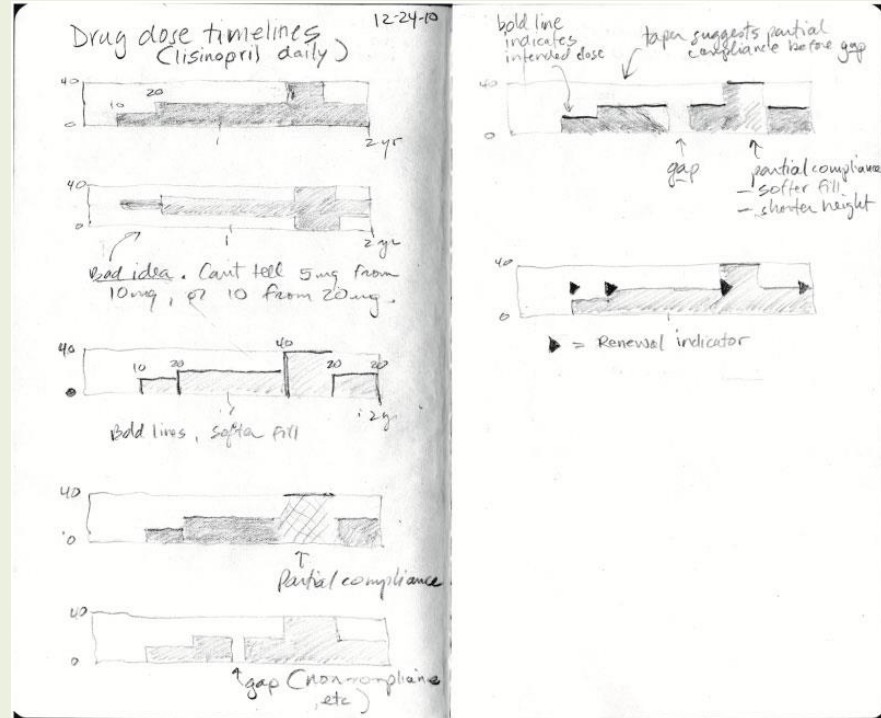 12-24-10
Drug dose timelines
(lisinopril daily)
40
20
10
0
2 yr
40
0
2 yr
Bad idea. Can't tell 5mg from
10mg, or 10 from 20mg.
40
40
10
20
20
20
2 yr
Bold lines, softer fill
40
0
Partial compliance
40
0
gap (non-compliance
, etc)
bold line
indicates
intended dose
taper suggests partial
compliance before gap
40
0
gap
partial compliance
- softer fill
- shorter height
40
0
= Renewal indicator